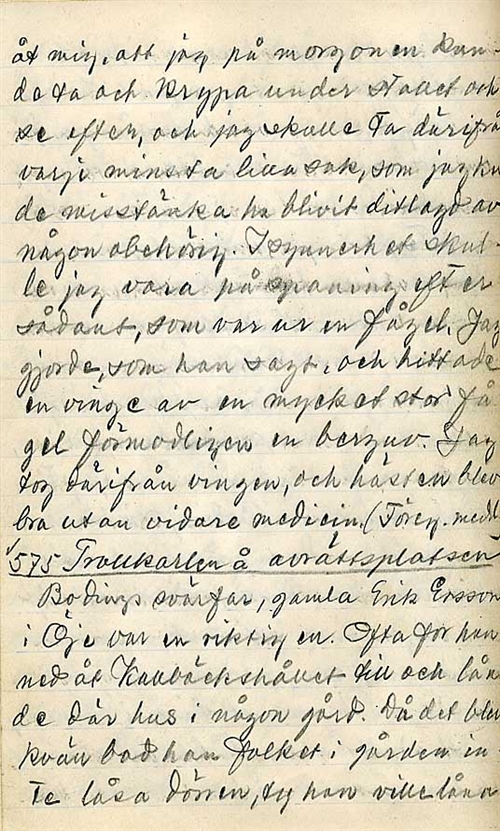 åt mig, att jag på morgonen kun-
de ta och krypa under stallet och
se efter, och jag skulle ta därifrå
varje minsta lilla sak, som jag kun
de misstänka ha blivit ditlagd av
någon obehörig. I synnerhet skul-
le jag vara på spaning efter
sådant, som var ur en fågel. Jag
gjorde, som han sagt, och hittade
en vinge av en mycket stor få
gel förmodligen en berguv. Jag
tog därifrån vingen, och hästen blev
bra utan vidare medicin. (Föreg. medd.)
575 Trollkarlen å avrättsplatsen
Bodings svärfar, gamla Erik Ersson
i Öje var en riktig en. Ofta for han
ned åt Kallbäckshållet till och lån
de där hus i någon gård. Då det blev
kväll bad han folket i gården in
te låsa dörren, ty han ville låna